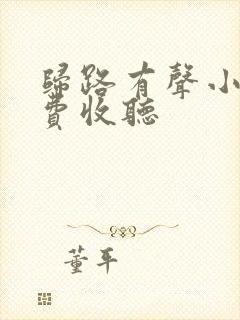 歸路有聲小
費收聽
董平